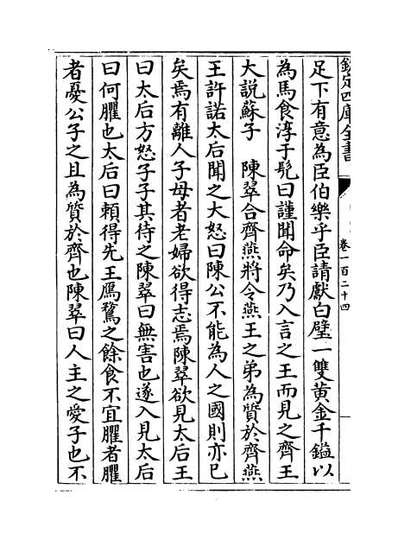 欽定四庫全書
卷一百二十四
足下有意為臣伯樂乎臣請獻白璧一雙黄金千鎰以
為馬食淳于髠曰謹聞命矣乃入言之王而見之齊王
大説蘇子 陳翠合齊燕將令燕王之弟為質於齊燕
王許諾太后聞之大怒曰陳公不能為人之國則亦已
矣焉有離人子母者老婦欲得志焉陳翠欲見太后王
曰太后方怒子子其待之陳翠曰無害也遂入見太后
曰何臞也太后曰頼得先王鴈鶩之餘食不宜臞者臞
者憂公子之且為質於齊也陳翠曰人主之愛子也不